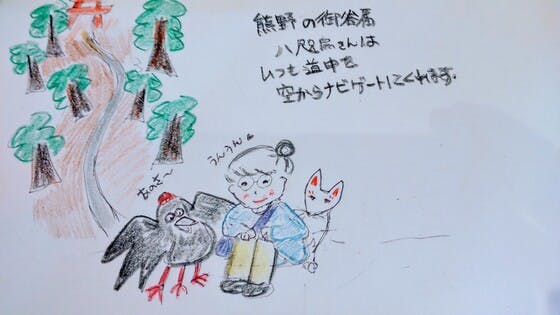 熊野の御眷属
八咫烏さんは
いつも道中を
空からナビゲートしてくれます。
うんうん
あのさ〜